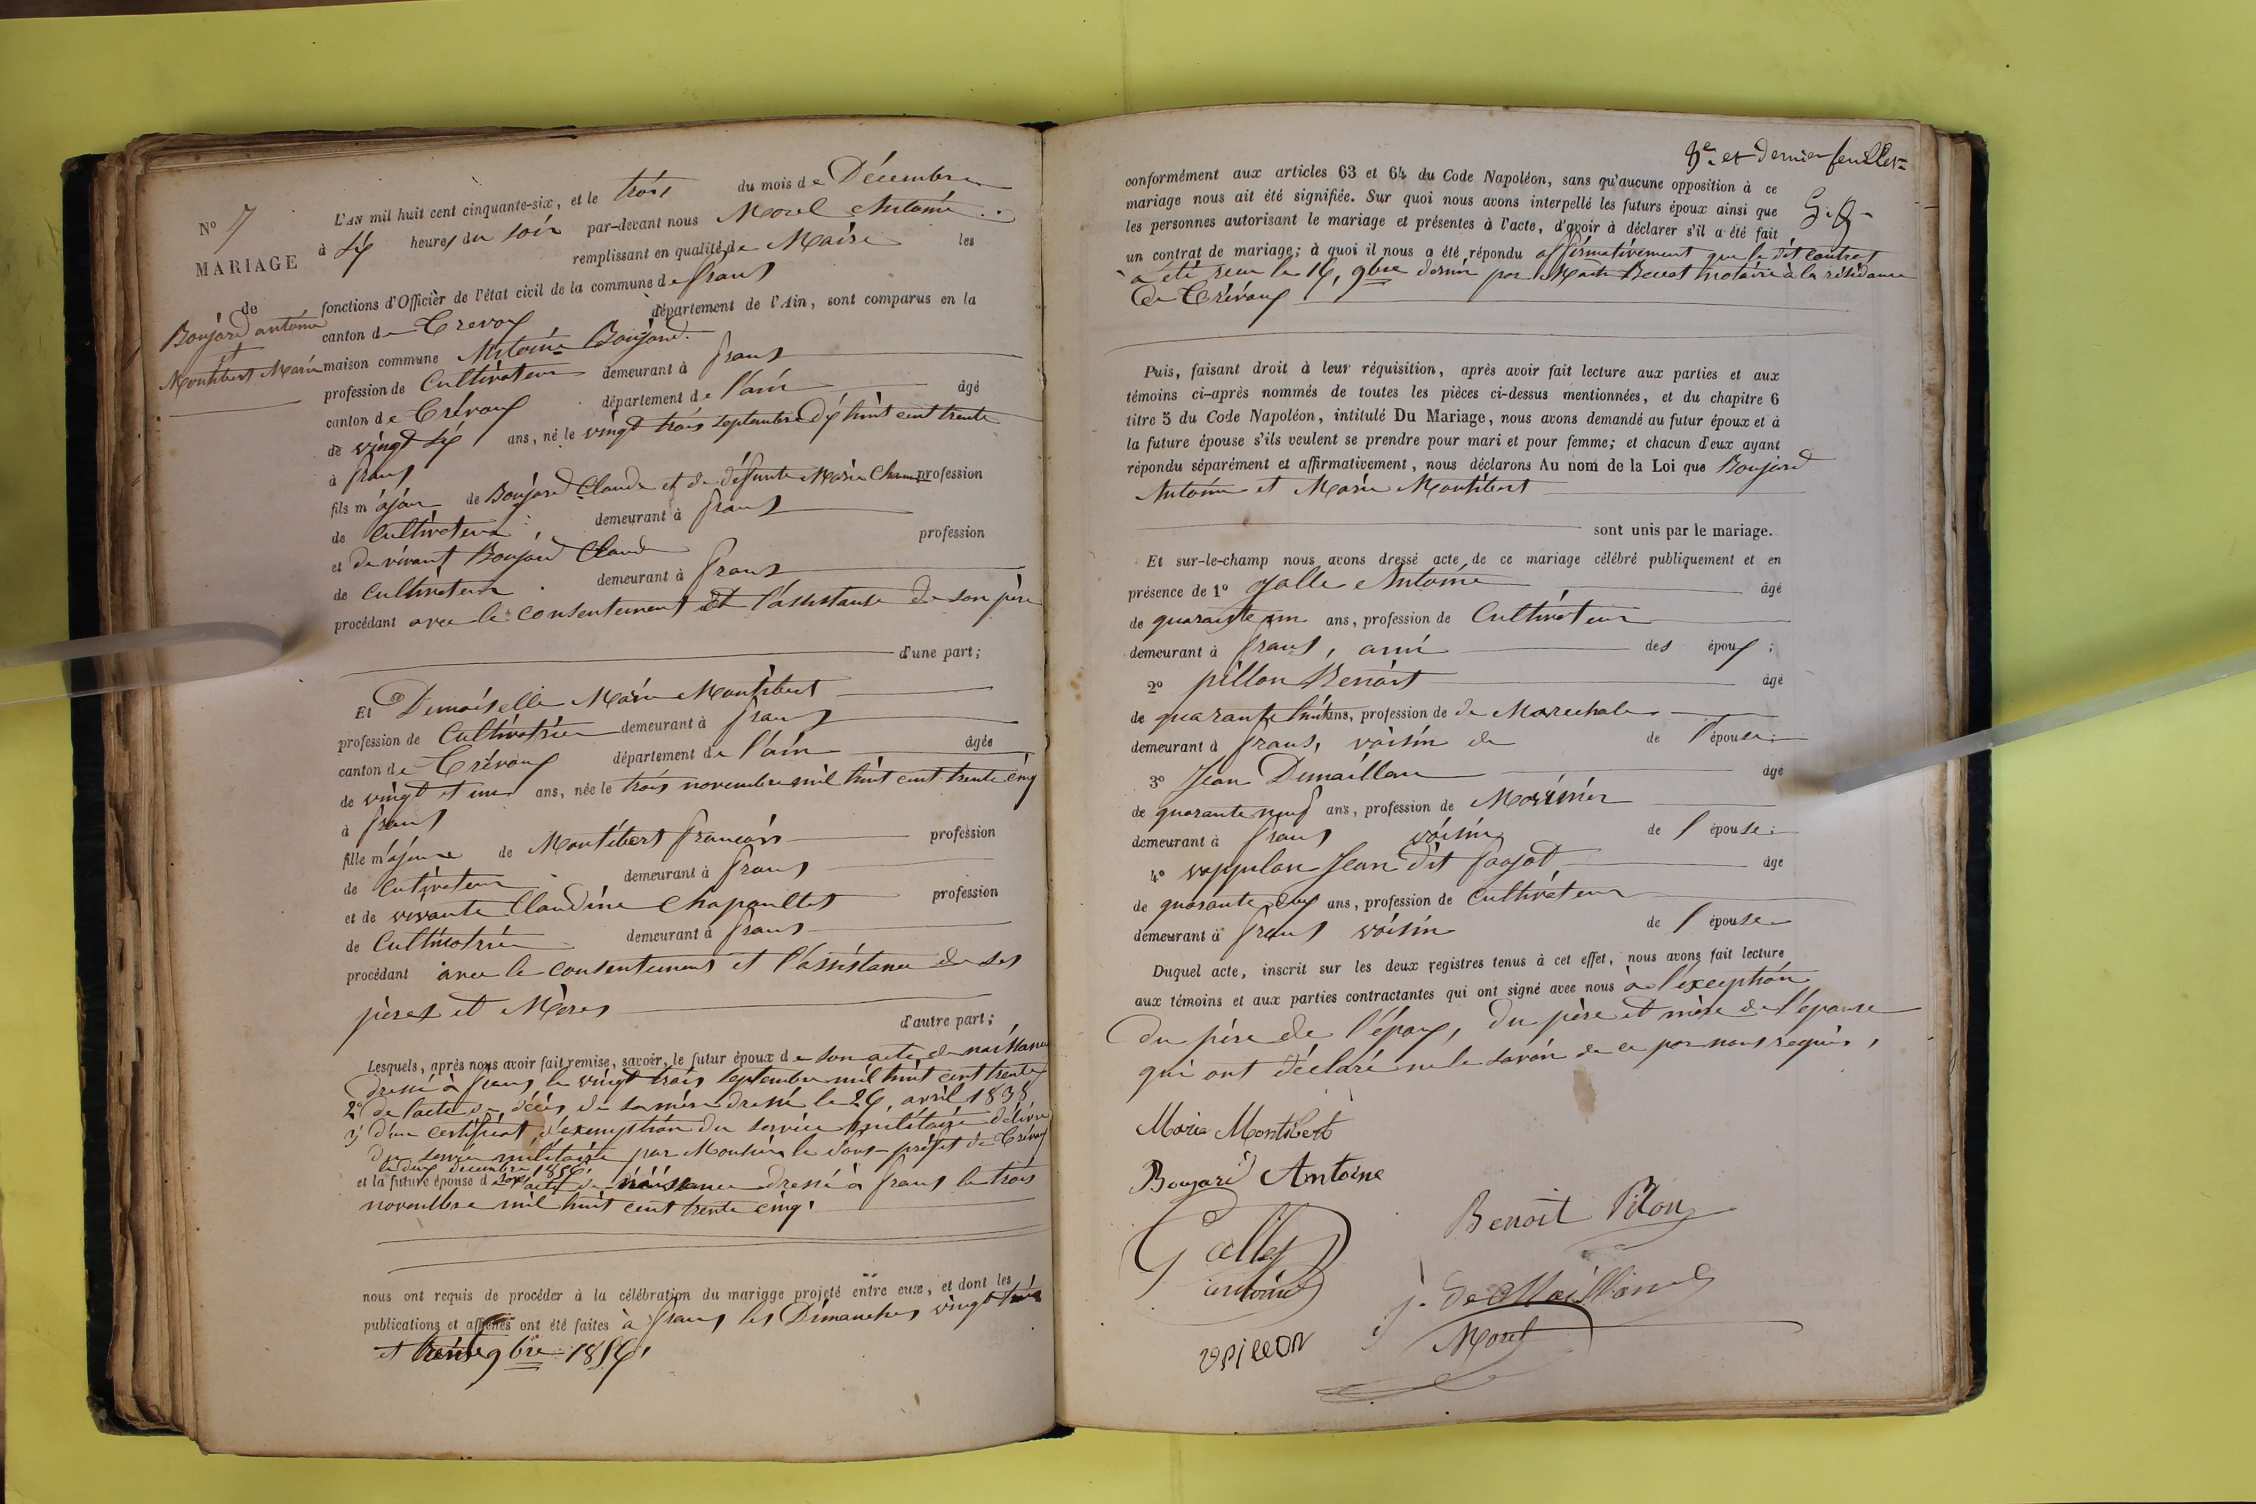 N° 7
MARIAGE
de
Boujard antoine
et
Montibert Marie
L'AN mil huit cent cinquante-six, et le trois du mois de Décembre
à six heures du soir par-devant nous Morel Antoine
remplissant en qualité de Maire les
fonctions d'Officier de l'état civil de la commune de frans
canton de Trevoux département de l'Ain, sont comparus en la
maison commune Antoine Boujard.
profession de Cultivateur demeurant à frans
canton de Trévoux département de l'ain âgé
de vingt six ans, né le vingt trois septembre dix huit cent trente
à frans
fils majeur de Boujard Claude et de défunte Marie profession
de Cultivateur demeurant à frans
et de vivant Boujard Claude profession
de Cultivateur demeurant à frans
procédant avec le consentement et l'assistance de son père
d'une part;
Et Demoiselle Marie Montibert
profession de Cultivatrice demeurant à frans
canton de Trévoux département de l'ain âgée
de vingt et une ans, née le trois novembre mil huit cent trente cinq
à frans
fille majeure de Montibert françois profession
de Cutivateur demeurant à frans
et de vivante Claudine Chapoulles profession
de Cultivatrice demeurant à frans
procédant avec le consentement et l'assistance de ses
pères et Mères
d'autre part;
Lesquels, après nous avoir fait remise, savoir, le futur époux de son acte de naissance
dressé à frans le vingt trois septembre mil huit cent trente
2° de l'acte de décès de sa mère dressé le 26, avril 1838
3° d'un certificat d'exemption du service militaire délivré
du service militaire par Monsieur le sous-préfet de Trévoux
le deux decembre 1856.
et la future épouse d son acte de naissance dressé à frans le trois
novembre mil huit cent trente cinq.
nous ont requis de procéder à la célébration du mariage projeté entre eux, et dont les
publications et affiches ont été faites à frans les Dimanches vingt trois
et trente 9bre 1856.
8e et dernier feuillet
conformément aux articles 63 et 64 du Code Napoléon, sans qu'aucune opposition à ce
mariage nous ait été signifiée. Sur quoi nous avons interpellé les futurs époux ainsi que
les personnes autorisant le mariage et présentes à l'acte, d'avoir à déclarer s'il a été fait
un contrat de mariage; à quoi il nous a été répondu affirmativement que le dit contrat
a été reçu le 16, 9bre dernier par Maitre notaire à la résidence
de Trévoux
Puis, faisant droit à leur réquisition, après avoir fait lecture aux parties et aux
témoins ci-après nommés de toutes les pièces ci-dessus mentionnées, et du chapitre 6
titre 5 du Code Napoléon, intitulé Du Mariage, nous avons demandé au futur époux et à
la future épouse s'ils veulent se prendre pour mari et pour femme; et chacun d'eux ayant
répondu séparément et affirmativement, nous déclarons Au nom de la Loi que Boujard
Antoine et Marie Montibert
sont unis par le mariage.
Et sur-le-champ nous avons dressé acte de ce mariage célébré publiquement et en
présence de 1° Galle Antoine âgé
de quarante un ans, profession de Cultivateur
demeurant à frans, ami des époux;
2° pillon Benoit âgé
de quarante huit ans, profession de de Marechale
demeurant à frans, voisin de de l'épouse;
3° Jean Demaillan âgé
de quarante neuf ans, profession de Marinier
demeurant à frans voisin de l'épouse;
4° vappilon Jean dit fagot âgé
de quarante deux ans, profession de Cultivateur
demeurant à frans voisin de l'épouse
Duquel acte, inscrit sur les deux registres tenus à cet effet, nous avons fait lecture
aux témoins et aux parties contractantes qui ont signé avec nous à l'exception
du père de l'époux, du père et mère de l'épouse
qui ont déclaré ne le savoir de ce par nous requis,
Marie Montibert
Boujard Antoine
Galle
antoine
Benoit Pilon
j. Demaillan
vpillon
Morel